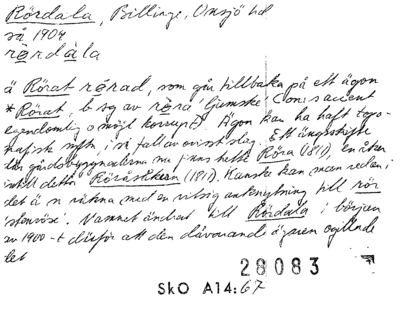 Rördala, Billinge, Onsjö hd
så 1904
rērdàla
ä Rörat rērad, som går tillbaka på ett ägon
*Rörat, b sg av rēra (Gjemske! Cons accent
egendomlig o möjl korrupt). Ägon kan ha haft topo-
grafisk syftn, i så fall av ovisst slag. Ett ängsskifte
där gårdsbyggnaderna nu finns hette Röra (1817), en åker
intill detta Röråskären (1817). Kanske kan man redan i
det ä n räkna med en viss anknytning till rör
'stenröse'. Namnet ändrat till Rördala i början
av 1900-t därför att den dåvarande ägaren ogillade
det
28083
SkO A14:67